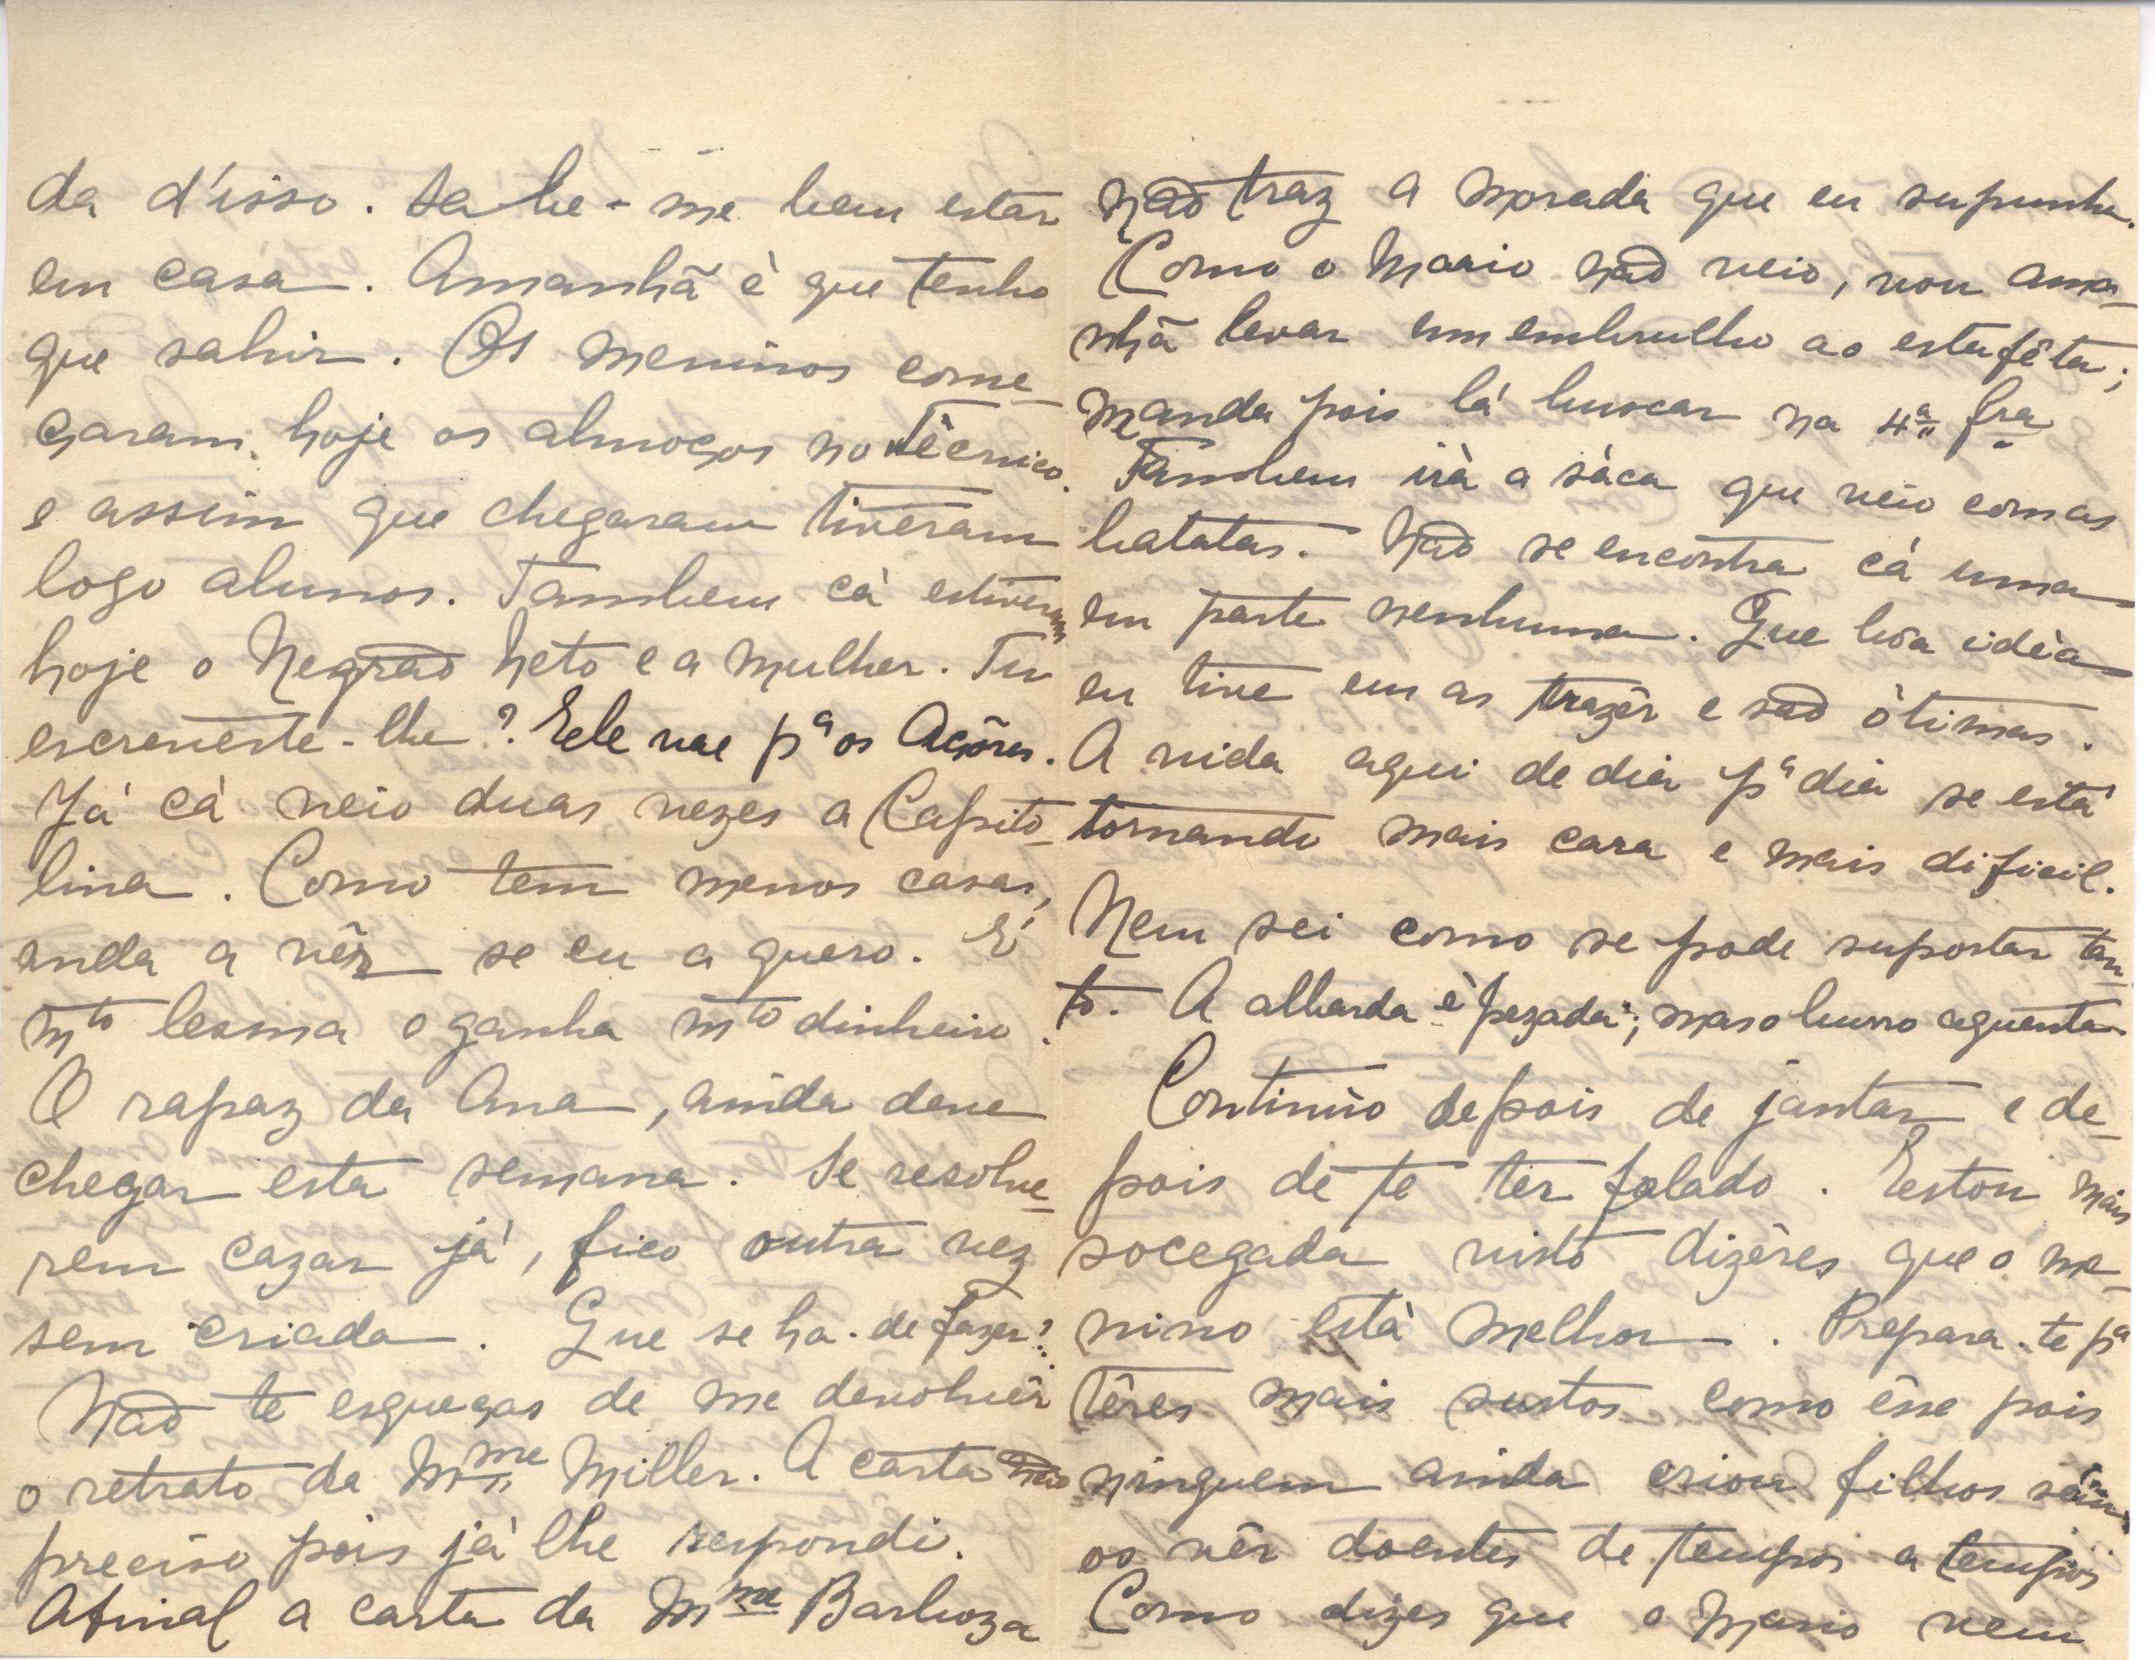 da d'isso. Sabe-me bem estar
em casa. Amanhã è que tenho
que sahir. Os meninos come-
çaram hoje os almoços no Tècnico.
e assim que chegaram tiveram
logo alunos. Tambem cà estiveram
hoje o Negrão Neto e a mulher. Tu
escreveste-lhe? Ele vae pª os Açôres.
Já cà veio duas vezes a Capito-
lina. Como tem menos casas,
anda a vêr se eu a quero. E'
mto lesma e ganha mto dinheiro.
O rapaz da Ana, ainda deve
chegar esta semana. Se resolve-
rem cazar já, fico outra vez
sem criada. Que se ha-de fazer?
Não te esqueças de me devolvêr
o retrato da Mme Miller. A carta não
preciso pois jà lhe respondi.
Afinal a carta da Mme Barboza
não traz a morada que eu supunha.
Como o Mario não veio, vou ama-
nhã levar um embrulho ao estafêta;
manda pois lá buscar na 4ª fra
Tambem irà a sàca que veio com as
batatas. Não se encontra cá uma
em parte nenhuma. Que bôa idèa
eu tive em as trazêr e são òtimas.
A vida aqui de dia pª dia se està
tornando mais cara e mais dificil.
Nem sei como se pode suportar tan-
to. A albarda è pezada; mas o burro aguenta
Continúo depois de jantar e de-
pois de te ter falado. Estou mais
socegada visto dizêres que o me-
nino està melhor. Prepara-te pª
têres mais sustos como êsse pois
ninguem ainda criou filhos sem
os vêr doentes de tempos a tempos
Como dizes que o Mario vem